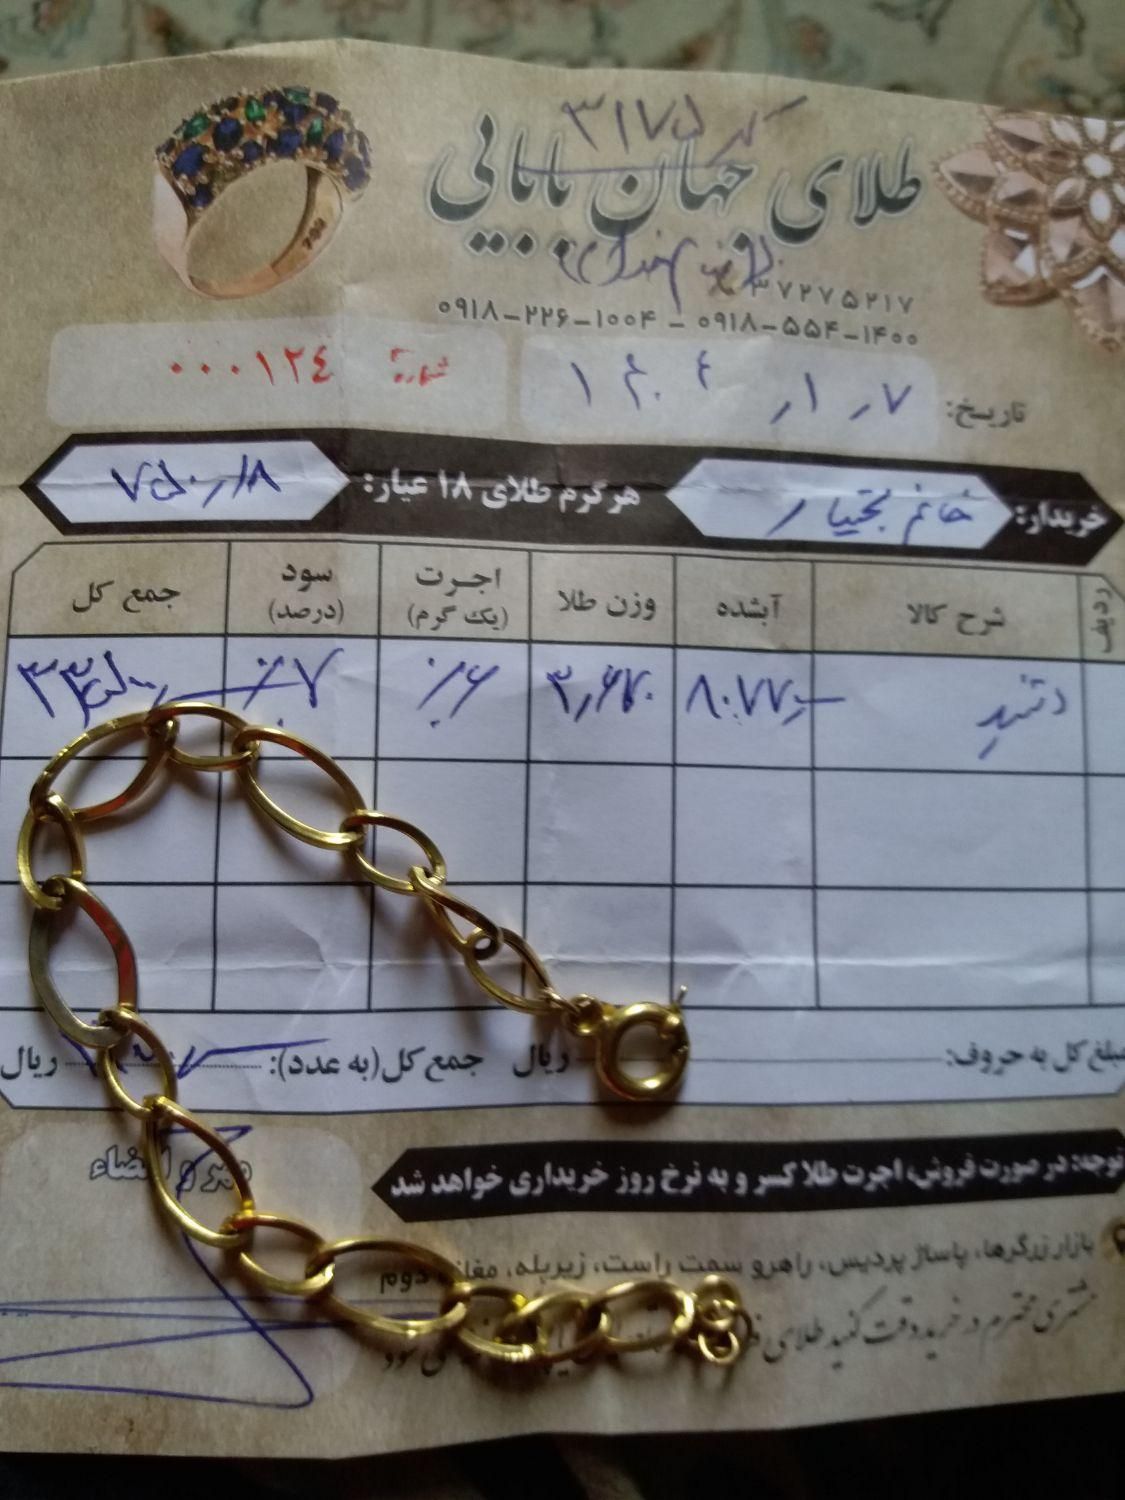 کد ۳۱۷۵
طلای جهان بابایی
۳۷۲۷۵۲۱۷
۰۹۱۸-۲۲۶-۱۰۰۴ - ۰۹۱۸-۵۵۴-۱۴۰۰
750
تاریخ: ۱۴۰۱/۱/۷
شماره ۰۰۰۱۲۴
خریدار: خانم بختیار هر گرم طلای ۱۸ عیار:
ردیف شرح کالا آبشده وزن طلا اجرت (یک گرم) سود (درصد) جمع کل
دستبند ۳٫۶۷۰ ٪۶ ٪۷
مبلغ کل به حروف: ریال جمع کل (به عدد): ریال
مهر و امضاء
توجه: در صورت فروش، اجرت طلا کسر و به نرخ روز خریداری خواهد شد
بازار زرگرها، پاساژ پردیس، راهرو سمت راست، زیرپله، مغازه دوم
مشتری محترم در خرید دقت کنید طلای